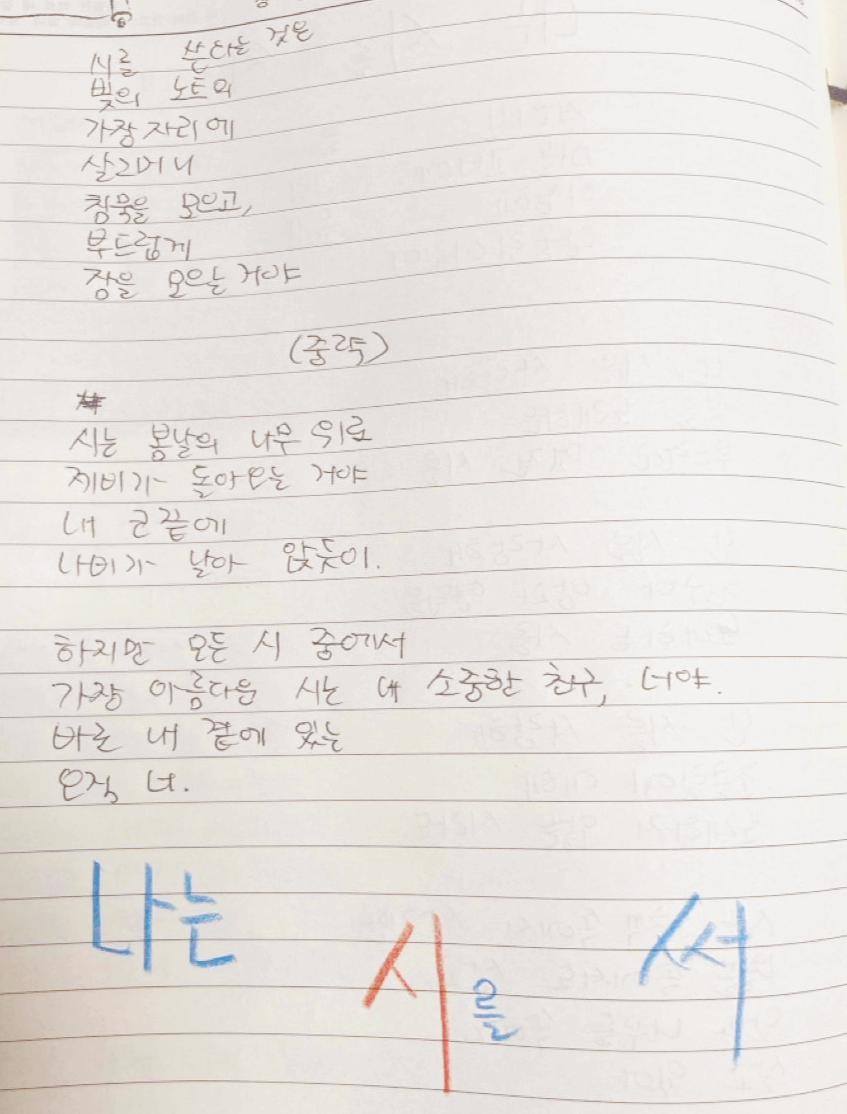 시를 쓴다는 것은
빛의 노트의
가장자리에
살그머니
침묵을 모으고,
부드럽게
잠을 모으는 거야
(중략)
시는 봄날의 나무 위로
제비가 돌아오는 거야
내 코 끝에
나비가 날아 앉듯이.
하지만 모든 시 중에서
가장 아름다운 시는 내 소중한 친구, 너야.
바로 내 곁에 있는
오직 너.
나는 시를 써